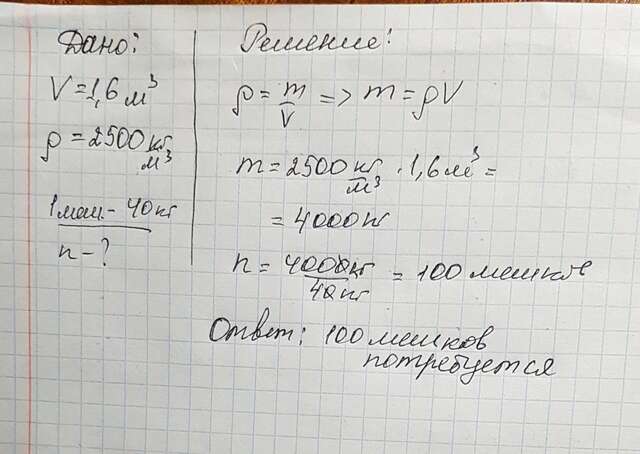 Дано:
V = 1,6 м³
ρ = 2500 кг/м³
1 меш. - 40 кг
n - ?
Решение:
ρ = m/V => m = ρV
m = 2500 кг/м³ · 1,6 м³ =
= 4000 кг
n = 4000 кг/40 кг = 100 мешков
Ответ: 100 мешков
потребуется